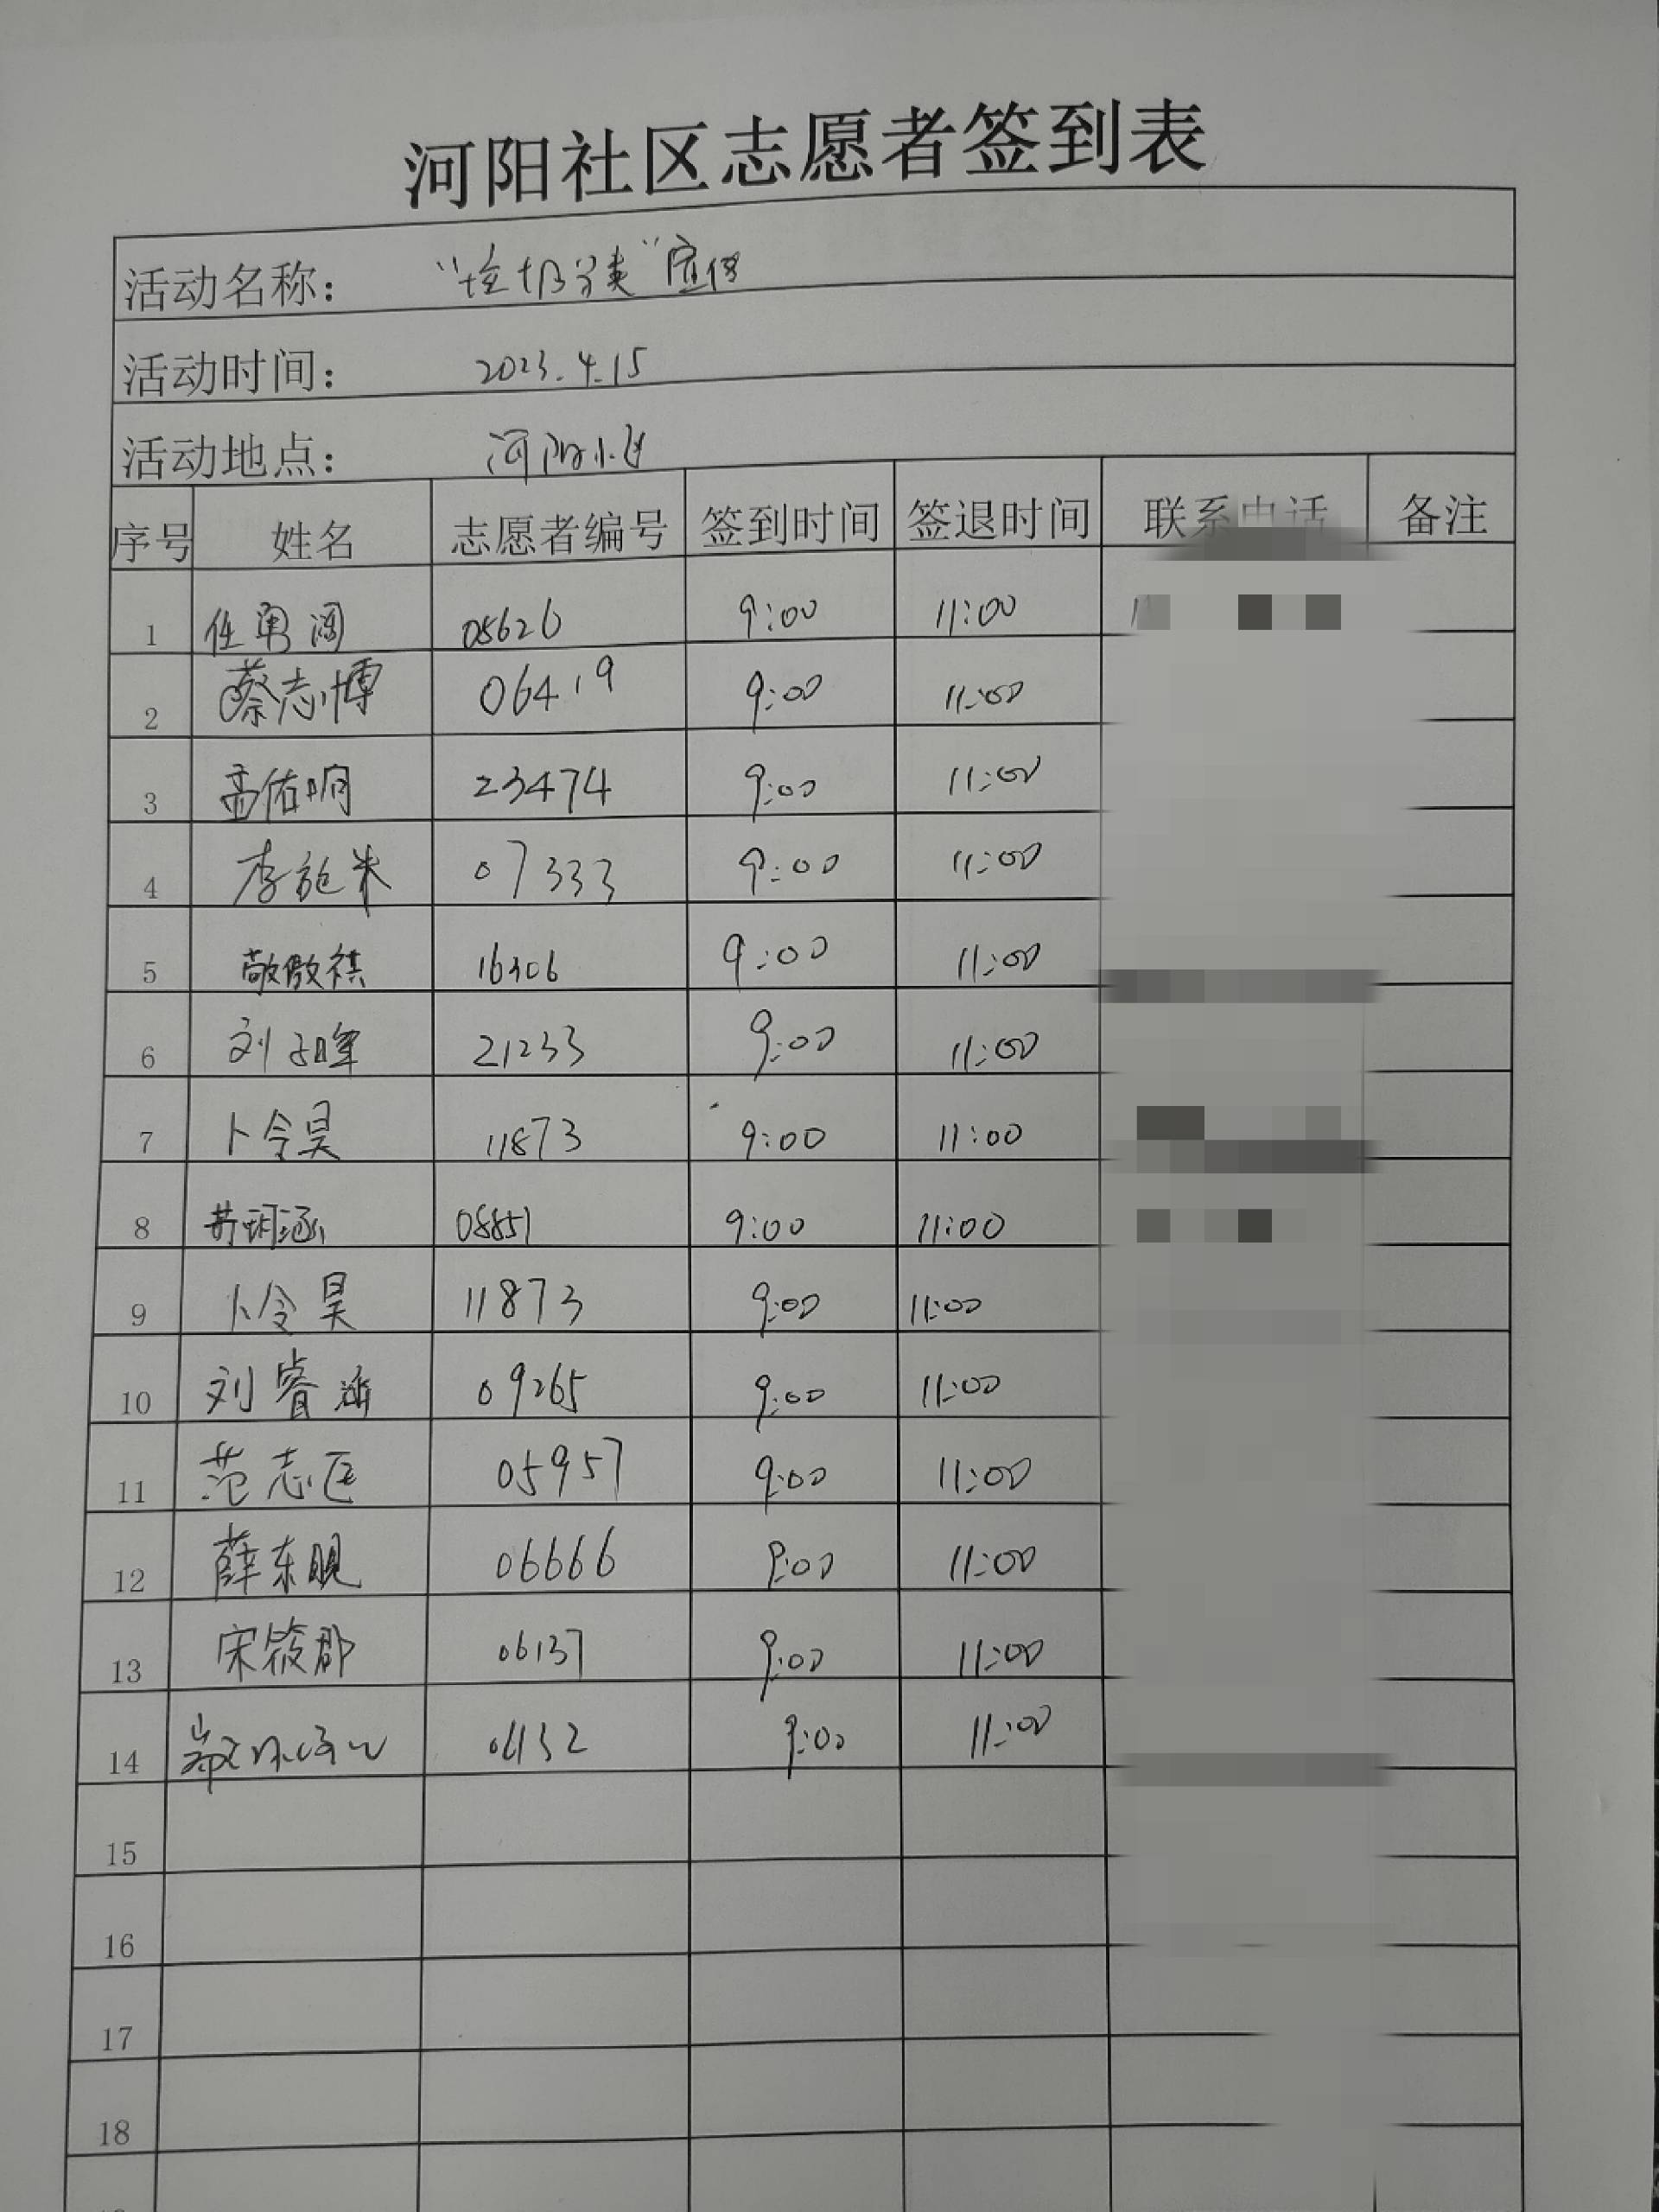 河阳社区志愿者签到表
活动名称： “垃圾分类”宣传
活动时间： 2023.4.15
活动地点： 河阳小区
序号 姓名 志愿者编号 签到时间 签退时间 联系电话 备注
1 任勇阁 05626 9:00 11:00
2 蔡志博 06419 9:00 11:00
3 孟佑响 23474 9:00 11:00
4 李 朱 07333 9:00 11:00
5 敬傲祺 16306 9:00 11:00
6 刘 9:00 11:00 21233
7 卜令昊 11873 9:00 11:00
8 涵 08851 9:00 11:00
9 卜令昊 11873 9:00 11:00
10 刘睿 09265 9:00 11:00
11 范志匡 05957 9:00 11:00
12 薛东 06666 9:00 11:00
13 宋筱郡 06137 9:00 11:00
14 06132 9:00 11:00
15
16
17
18